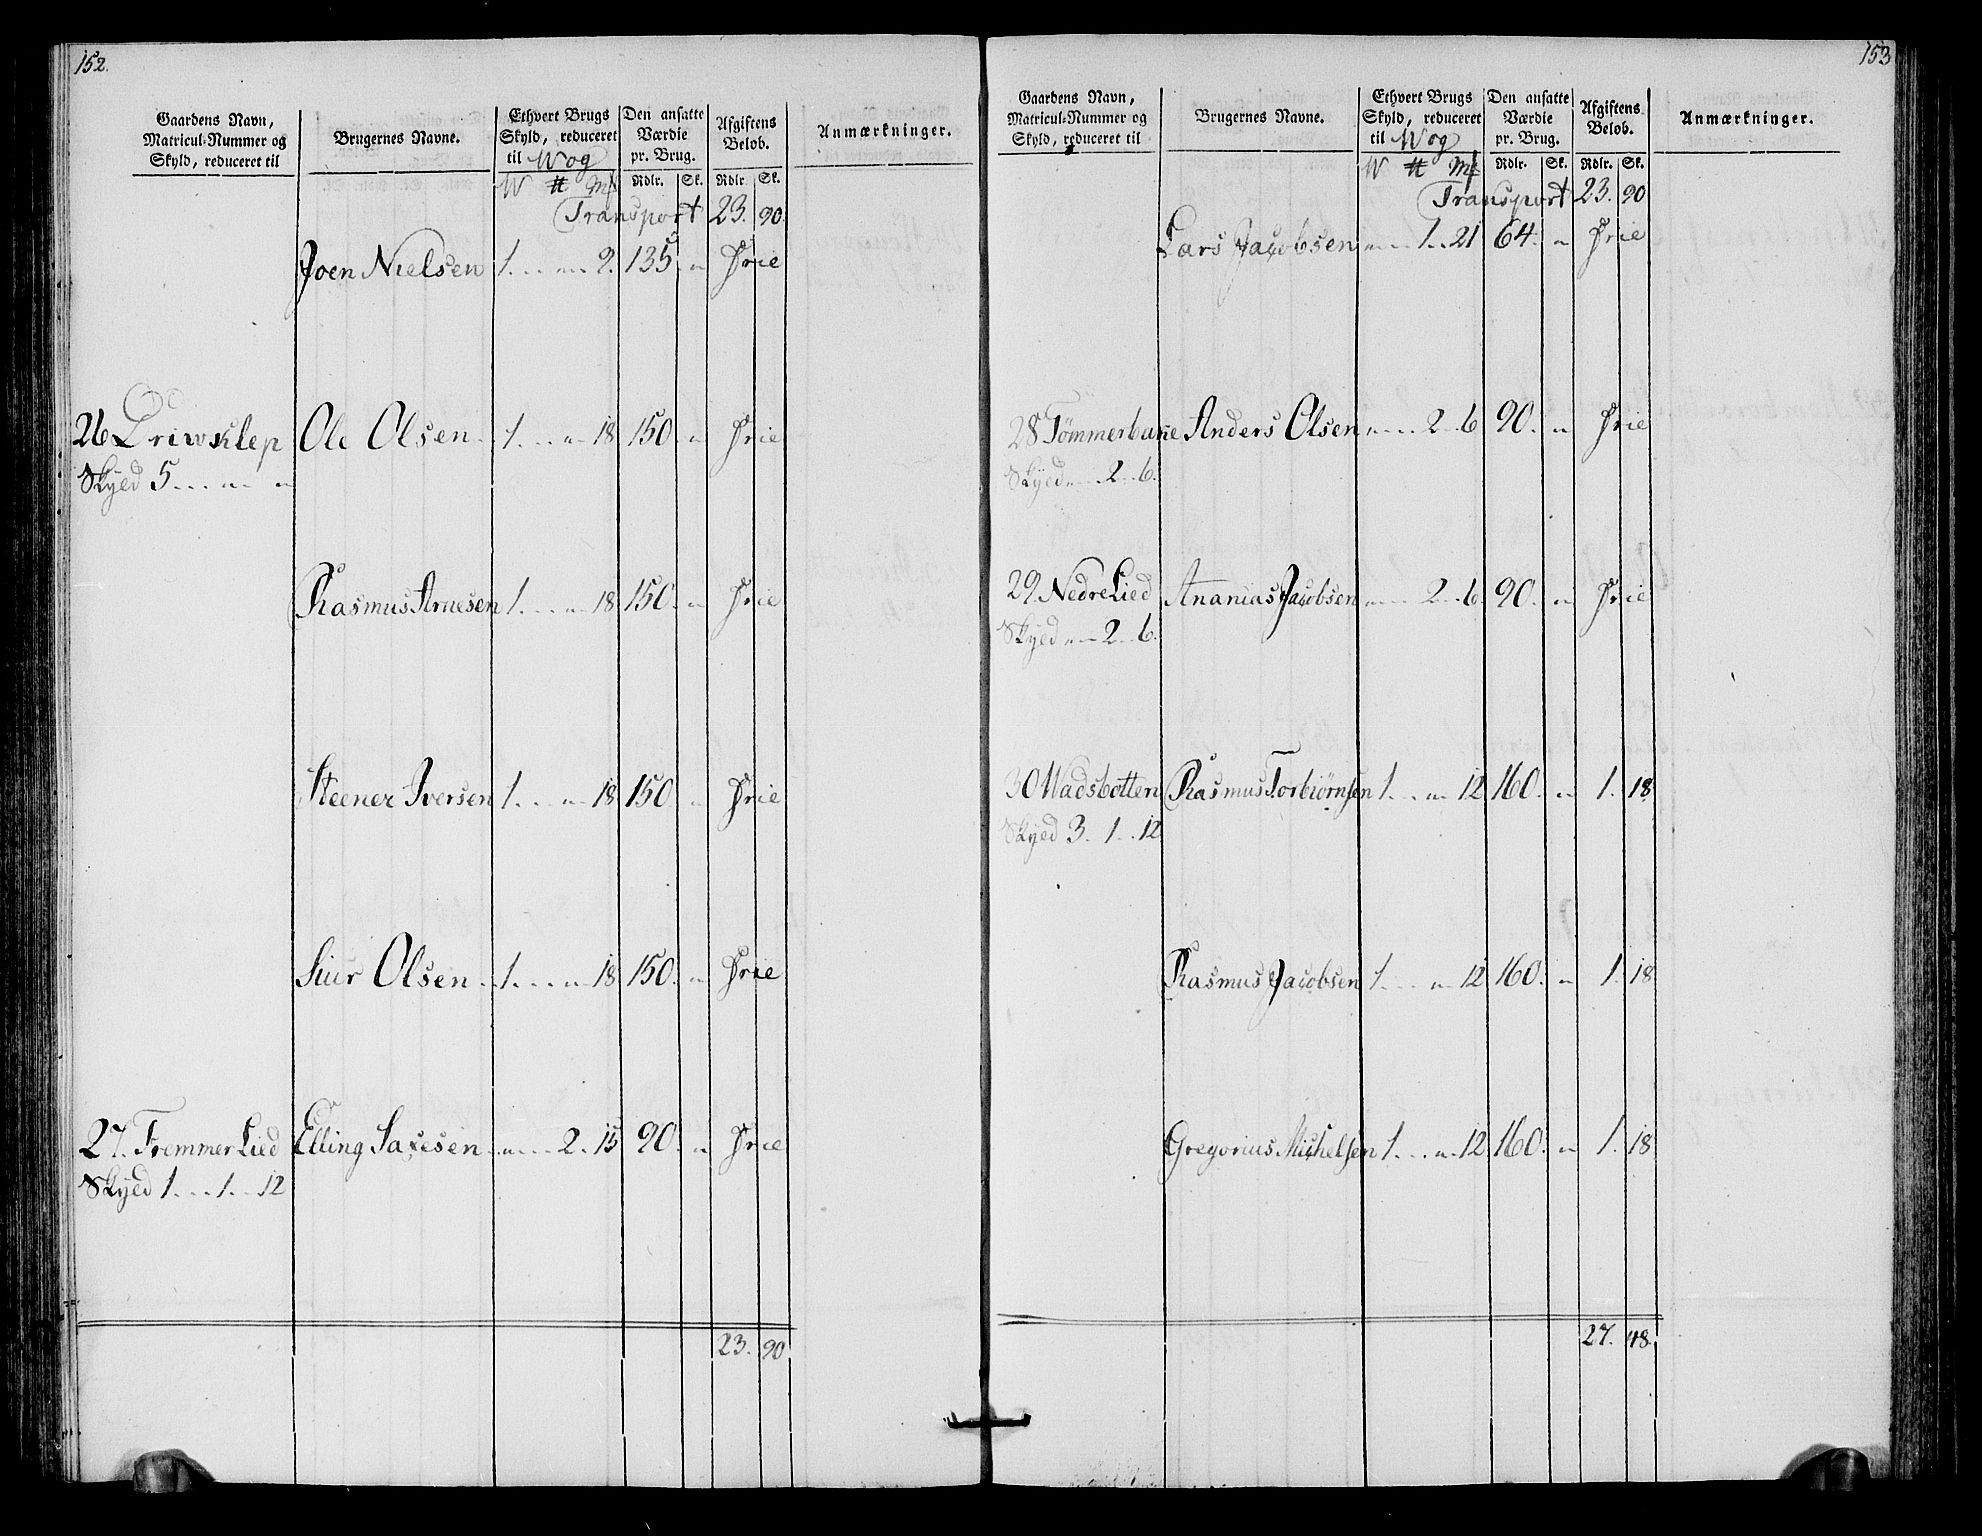 152.
Gaardens Navn, Matricul-Nummer og Skyld, reduceret til
Brugernes Navne.
Ethvert Brugs Skyld, reduceret til Wog
Den ansatte Værdie pr. Brug.
Afgiftens Beløb.
Anmærkninger.
W # Mk Rdlr. Sk. Rdlr. Sk.
Transport 23. 90.
Joen Nielsen 1 . . . „ 2. 135 „ Frie
26 Driwsklep Ole Olsen 1 . . . „ 18 150 „ Frie
Skyld 5 . . . „ „
Rasmus Arnesen 1 . . . „ 18 150. „ Frie
Steener Iversen 1 . . . „ 18 150 „ Frie
Siur Olsen 1 . . . „ 18 150. „ Frie
27. Fremmer Lied Elling Saxesen „ . . 2. 15 90. „ Frie
Skyld 1 . . . 1 . . 12
23. 90
153
Gaardens Navn, Matricul-Nummer og Skyld, reduceret til
Brugernes Navne.
Ethvert Brugs Skyld, reduceret til Wog
Den ansatte Værdie pr. Brug.
Afgiftens Beløb.
Anmærkninger.
W # Mk Rdlr. Sk. Rdlr. Sk.
Transport 23. 90
Lars Jacobsen „ . . 1 . . 21 64. „ Frie
28 Tömmerbane Anders Olsen „ . . 2 . . 6 90. „ Frie
Skyld „ . . 2 . . 6.
29. Nedre Lied Ananias Jacobsen „ . . 2 . . 6. 90. „ Frie
Skyld „ . . 2 . . 6.
30 Wadsbotten Rasmus Torbiörnsen 1 . . . „ 12 160. „ 1. 18
Skyld 3. . 1 . . 12
Rasmus Jacobsen 1 . . . „ 12 160. „ 1. 18
Gregorius Michelsen 1 . . . „ 12 160. „ 1. 18
27. 48.